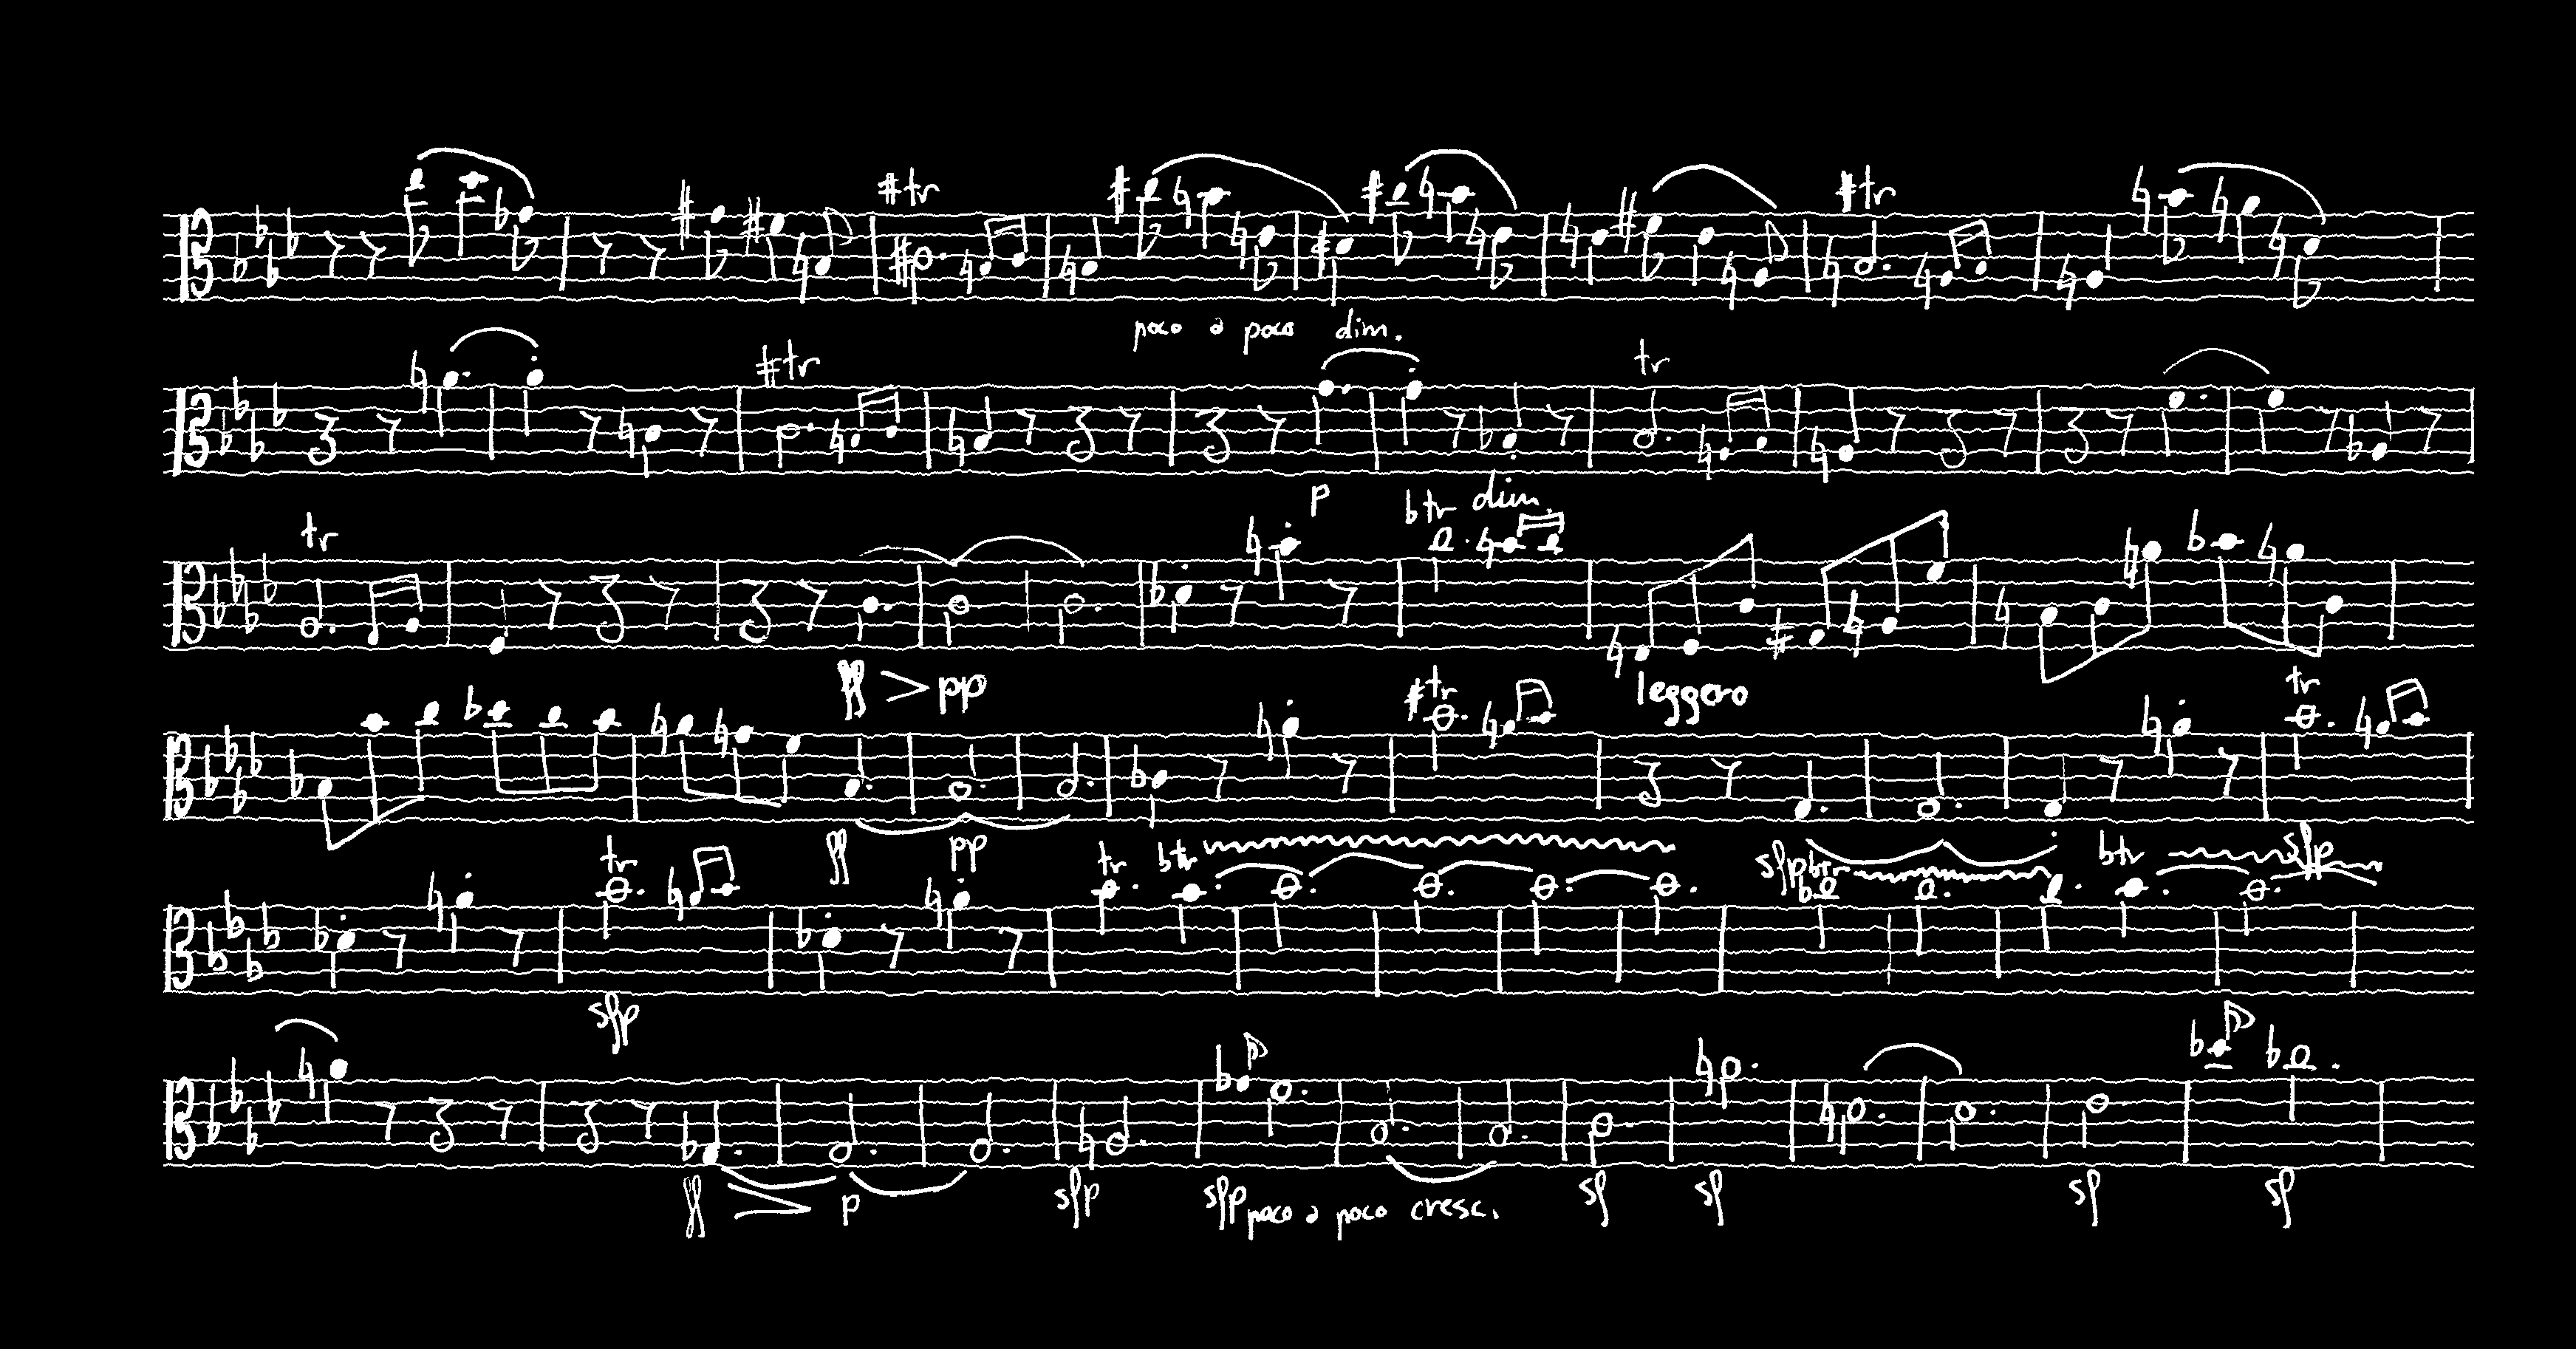 #tr #tr
poco a poco dim.
#tr tr
p
tr btr dim.
ff > pp leggero
#tr tr
ff pp
tr tr btr sfp btr btr sfp
sfp
ff p sfp sfp poco a poco cresc. sf sf sf sf